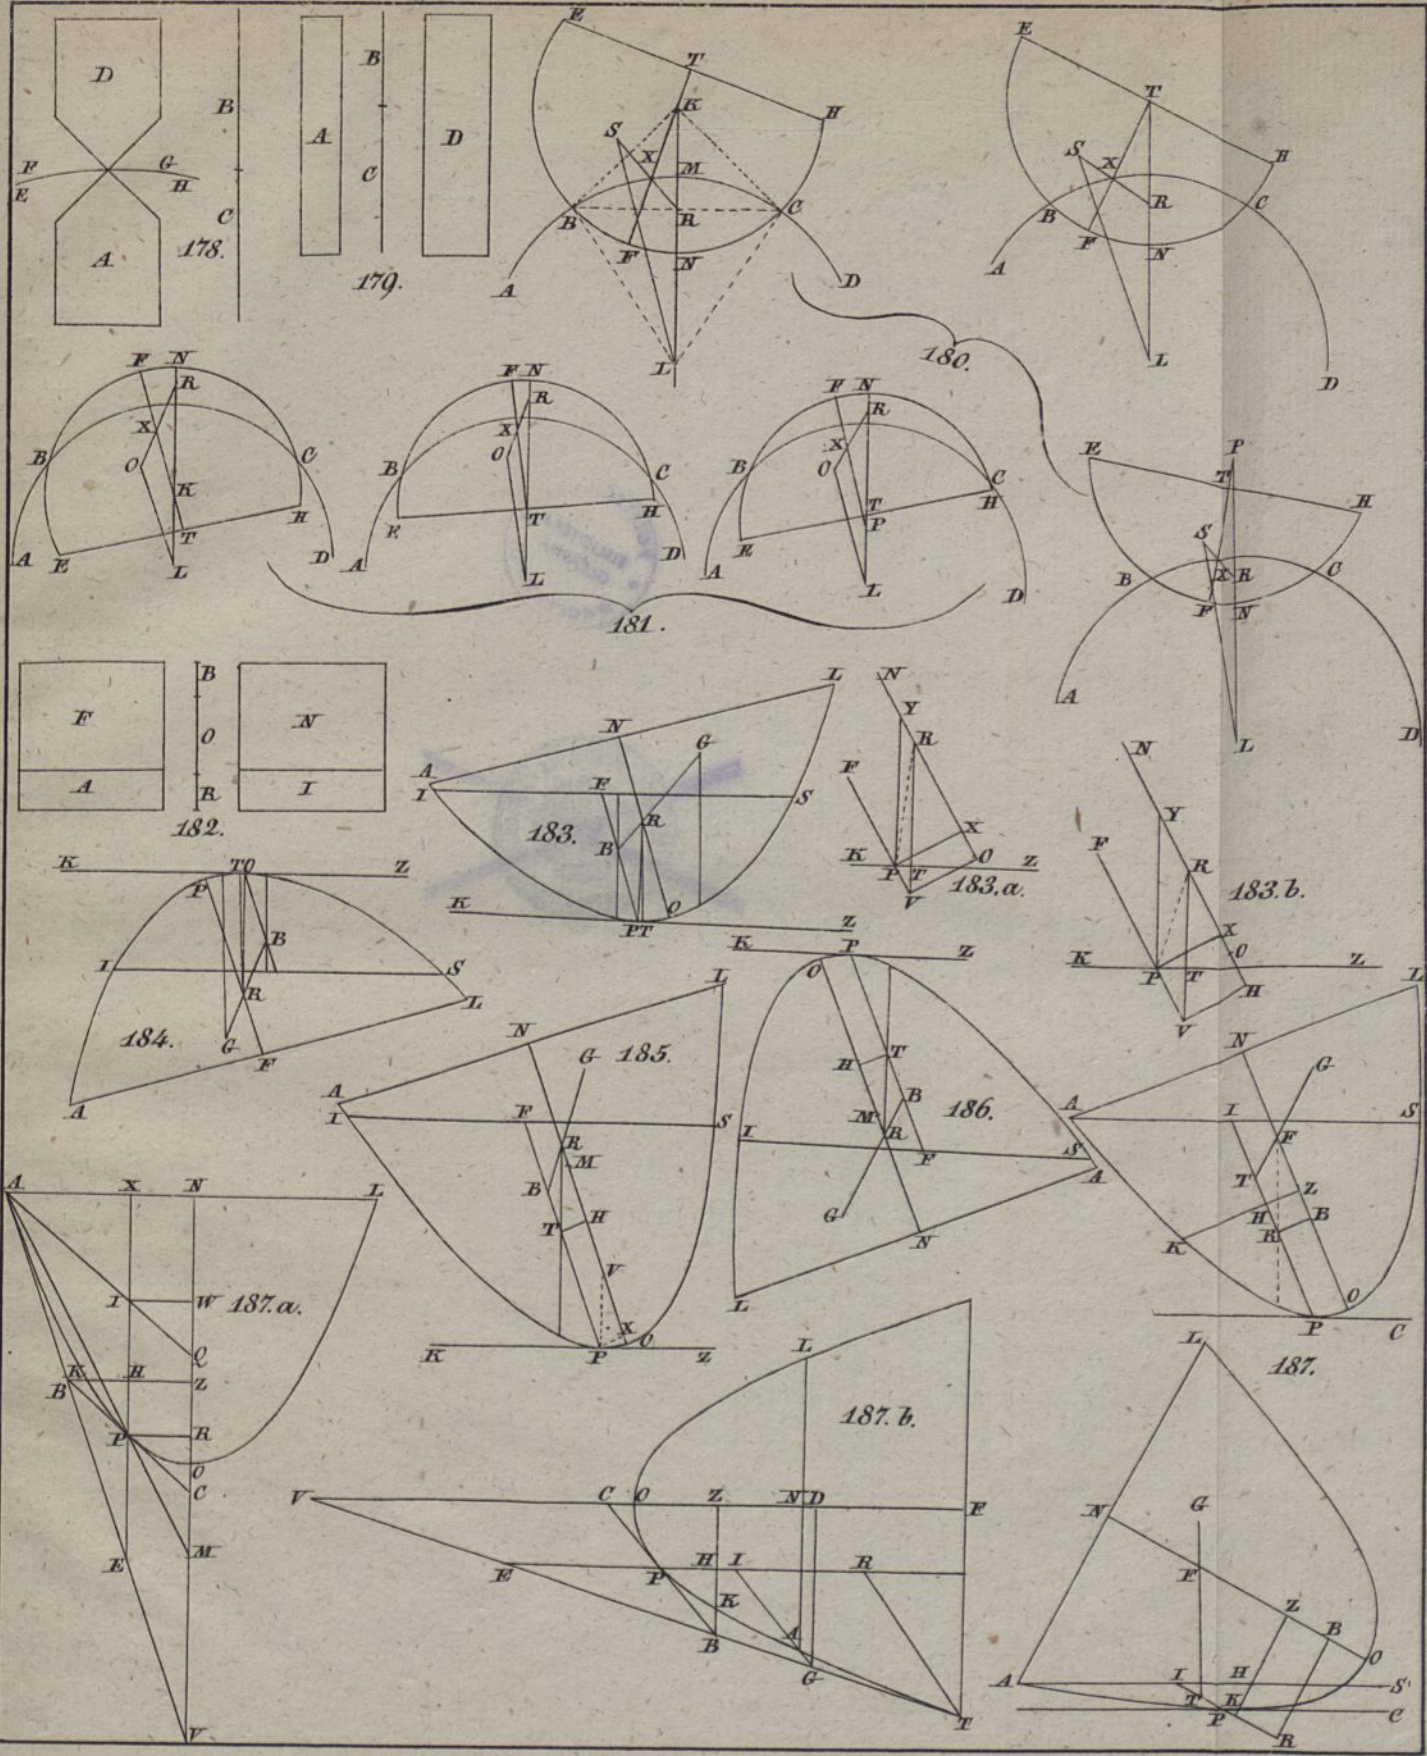 D
B
F
G
E
H
C
A
178.
B
A
D
C
179.
E
T
K
H
S
X
M
B
R
C
F
N
A
D
L
E
T
H
S
X
R
B
C
F
N
A
L
D
180.
F N
R
X
B
C
O
K
H
T
A
E
L
D
F N
R
X
B
O
C
E
T
H
A
L
D
F N
R
X
B
O
C
T
H
P
E
A
L
D
181.
E
P
T
H
S
B
X
R
C
F
N
A
L
D
F
A
B
O
R
N
I
182.
L
N
G
A
I
F
S
183.
R
B
K
O
P T
Z
N
Y
R
F
X
K
O
P
T
Z
V
183.a.
N
Y
F
R
183.b.
X
O
K
P
T
Z
H
V
K
T O
Z
P
B
I
S
R
L
184.
G
F
A
L
N
G
185.
A
I
F
S
R
M
B
T
H
V
X
K
P
O
Z
K
P
Z
O
T
H
B
M
R
186.
I
F
S
A
G
N
L
L
N
G
A
I
S
F
T
Z
H
B
K
R
O
P
C
187.
A
X
N
L
I
W
187.a.
Q
K
H
Z
B
P
R
O
C
E
M
V
L
187.b.
V
C
O
Z
N
D
F
E
P
H
I
R
K
B
A
G
T
L
N
G
F
Z
B
O
A
I
H
S
T
K
P
C
R